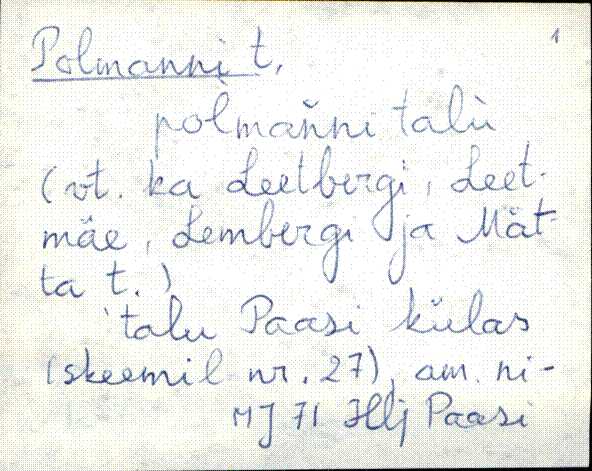 1
Polmanni t.
polmanni talu
(vt. ka Leetbergi, Leet-
mäe, Lembergi ja Mät-
ta t.)
talu Paasi külas
(skeemil nr. 27), am. ni-
MJ 71 Hlj Paasi